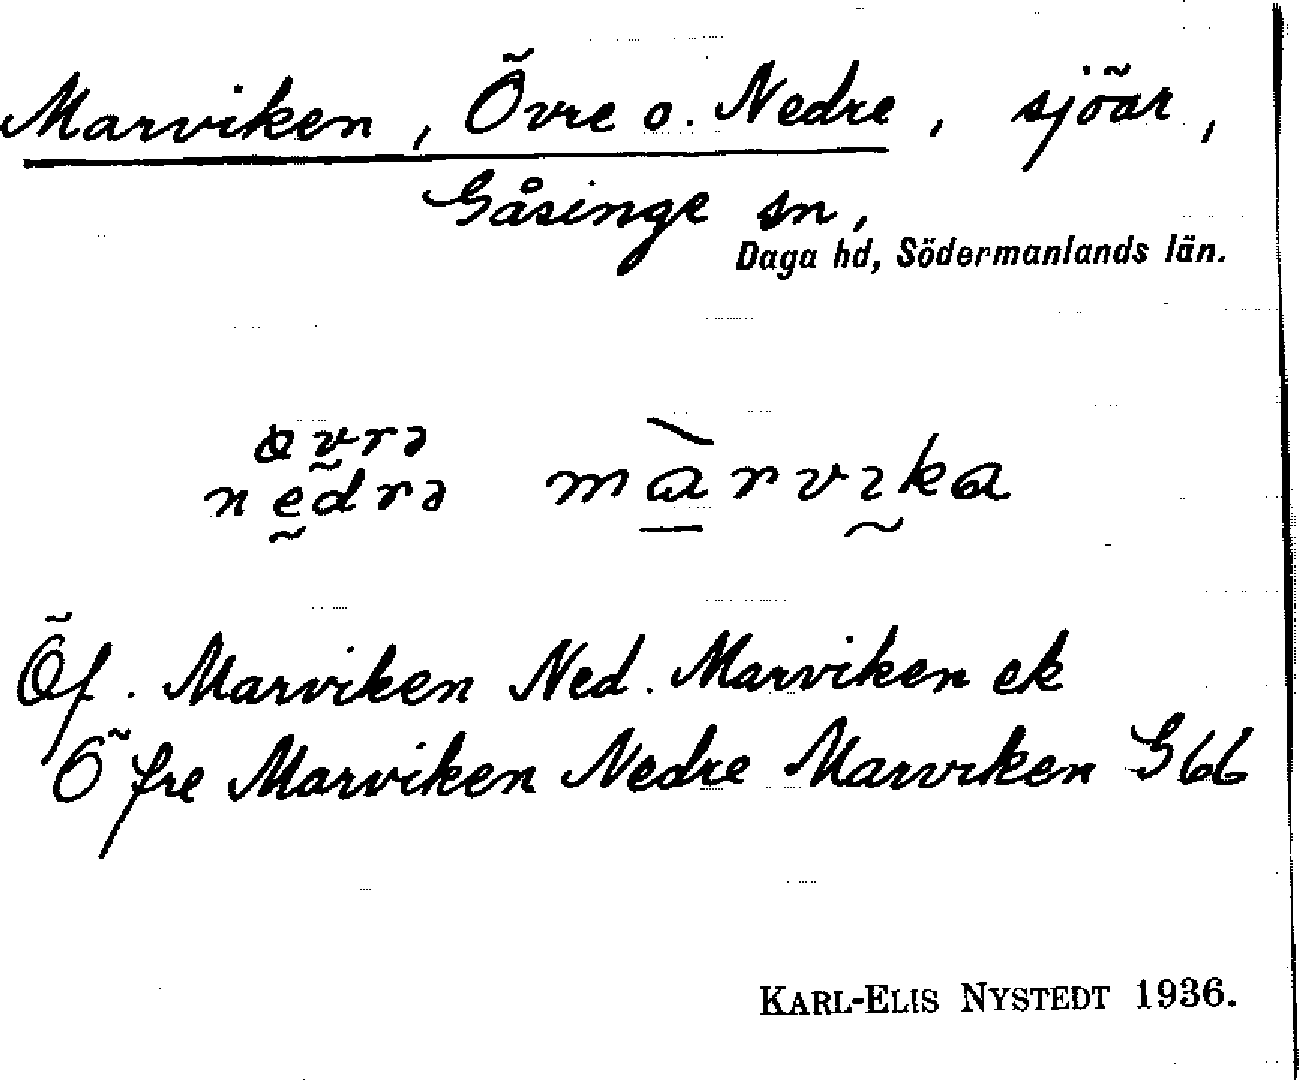 Marviken, Övre o. Nedre, sjöar,
Gåsinge sn,
Daga hd, Södermanlands län.
øvrə
nedrə màrvɩka
Öf. Marviken Ned. Marviken ek
Öfre Marviken Nedre Marviken G66
KARL-ELIS NYSTEDT 1936.